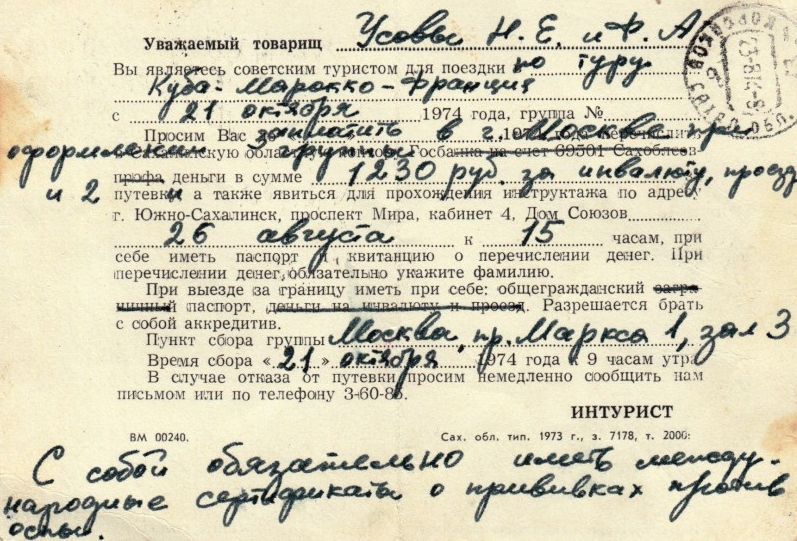 Уважаемый товарищ Усовы Н. Е. и Ф. А
Вы являетесь советским туристом для поездки по туру
Куба-Марокко-Франция
с 21 октября 1974 года, группа №
Просим Вас до заплатить в г. Москва при 197 года перечислить
оформлении группы в Сахалинскую областную контору Госбанка на счет 69501 Сахоблсов-
профа деньги в сумме 1230 руб. за инвалюту, проезд
и 2 и путевки а также явиться для прохождения инструктажа по адресу
г. Южно-Сахалинск, проспект Мира, кабинет 4, Дом Союзов
26 августа к 15 часам, при
себе иметь паспорт и квитанцию о перечислении денег. При
перечислении денег, обязательно укажите фамилию.
При выезде за границу иметь при себе: общегражданский загра-
ничный паспорт, деньги на инвалюту и проезд. Разрешается брать
с собой аккредитив.
Пункт сбора группы Москва, пр. Маркса 1, зал 3
Время сбора « 21 » октября 1974 года к 9 часам утра
В случае отказа от путевки просим немедленно сообщить нам
письмом или по телефону 3-60-85.
ИНТУРИСТ
ВМ 00240. Сах. обл. тип. 1973 г., з. 7178, т. 2000:
С собой обязательно иметь между-
народные сертификаты о прививках против
оспы.